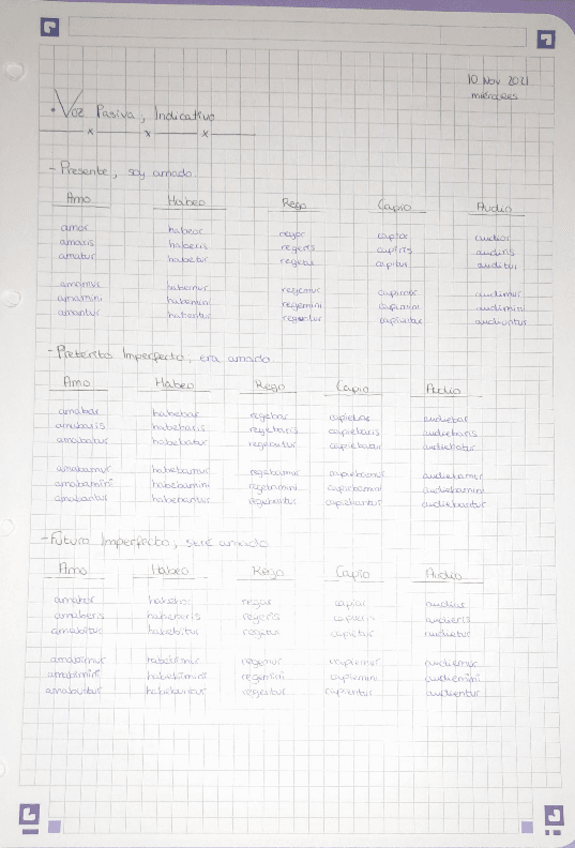 10 Nov 2021
miércoles
• Voz Pasiva, Indicativo
x x x
- Presente, soy amado
Amo Habeo Rego Capio Audio
amor habeor regor capior audior
amaris haberis regeris capiris audiris
amatur habetur regitur capitur auditur
amamur habemur regemur capimur audimur
amamini habemini regemini capimini audimini
amantur habentur reguntur capiuntur audiuntur
- Pretérito Imperfecto, era amado
Amo Habeo Rego Capio Audio
amabar habebar regebar capiebar audiebar
amabaris habebaris regebaris capiebaris audiebaris
amabatur habebatur regebatur capiebatur audiebatur
amabamur habebamur regebamur capiebamur audiebamur
amabamini habebamini regebamini capiebamini audiebamini
amabantur habebantur regebantur capiebantur audiebantur
- Futuro Imperfecto, seré amado
Amo Habeo Rego Capio Audio
amabor habebor regar capiar audiar
amaberis habeberis regeris audieris
amabitur habebitur capietur audietur
amabimur habebimur regemur capiemur audiemur
amabimini habebimini regemini capiemini audiemini
amabuntur habebuntur regentur capientur audientur